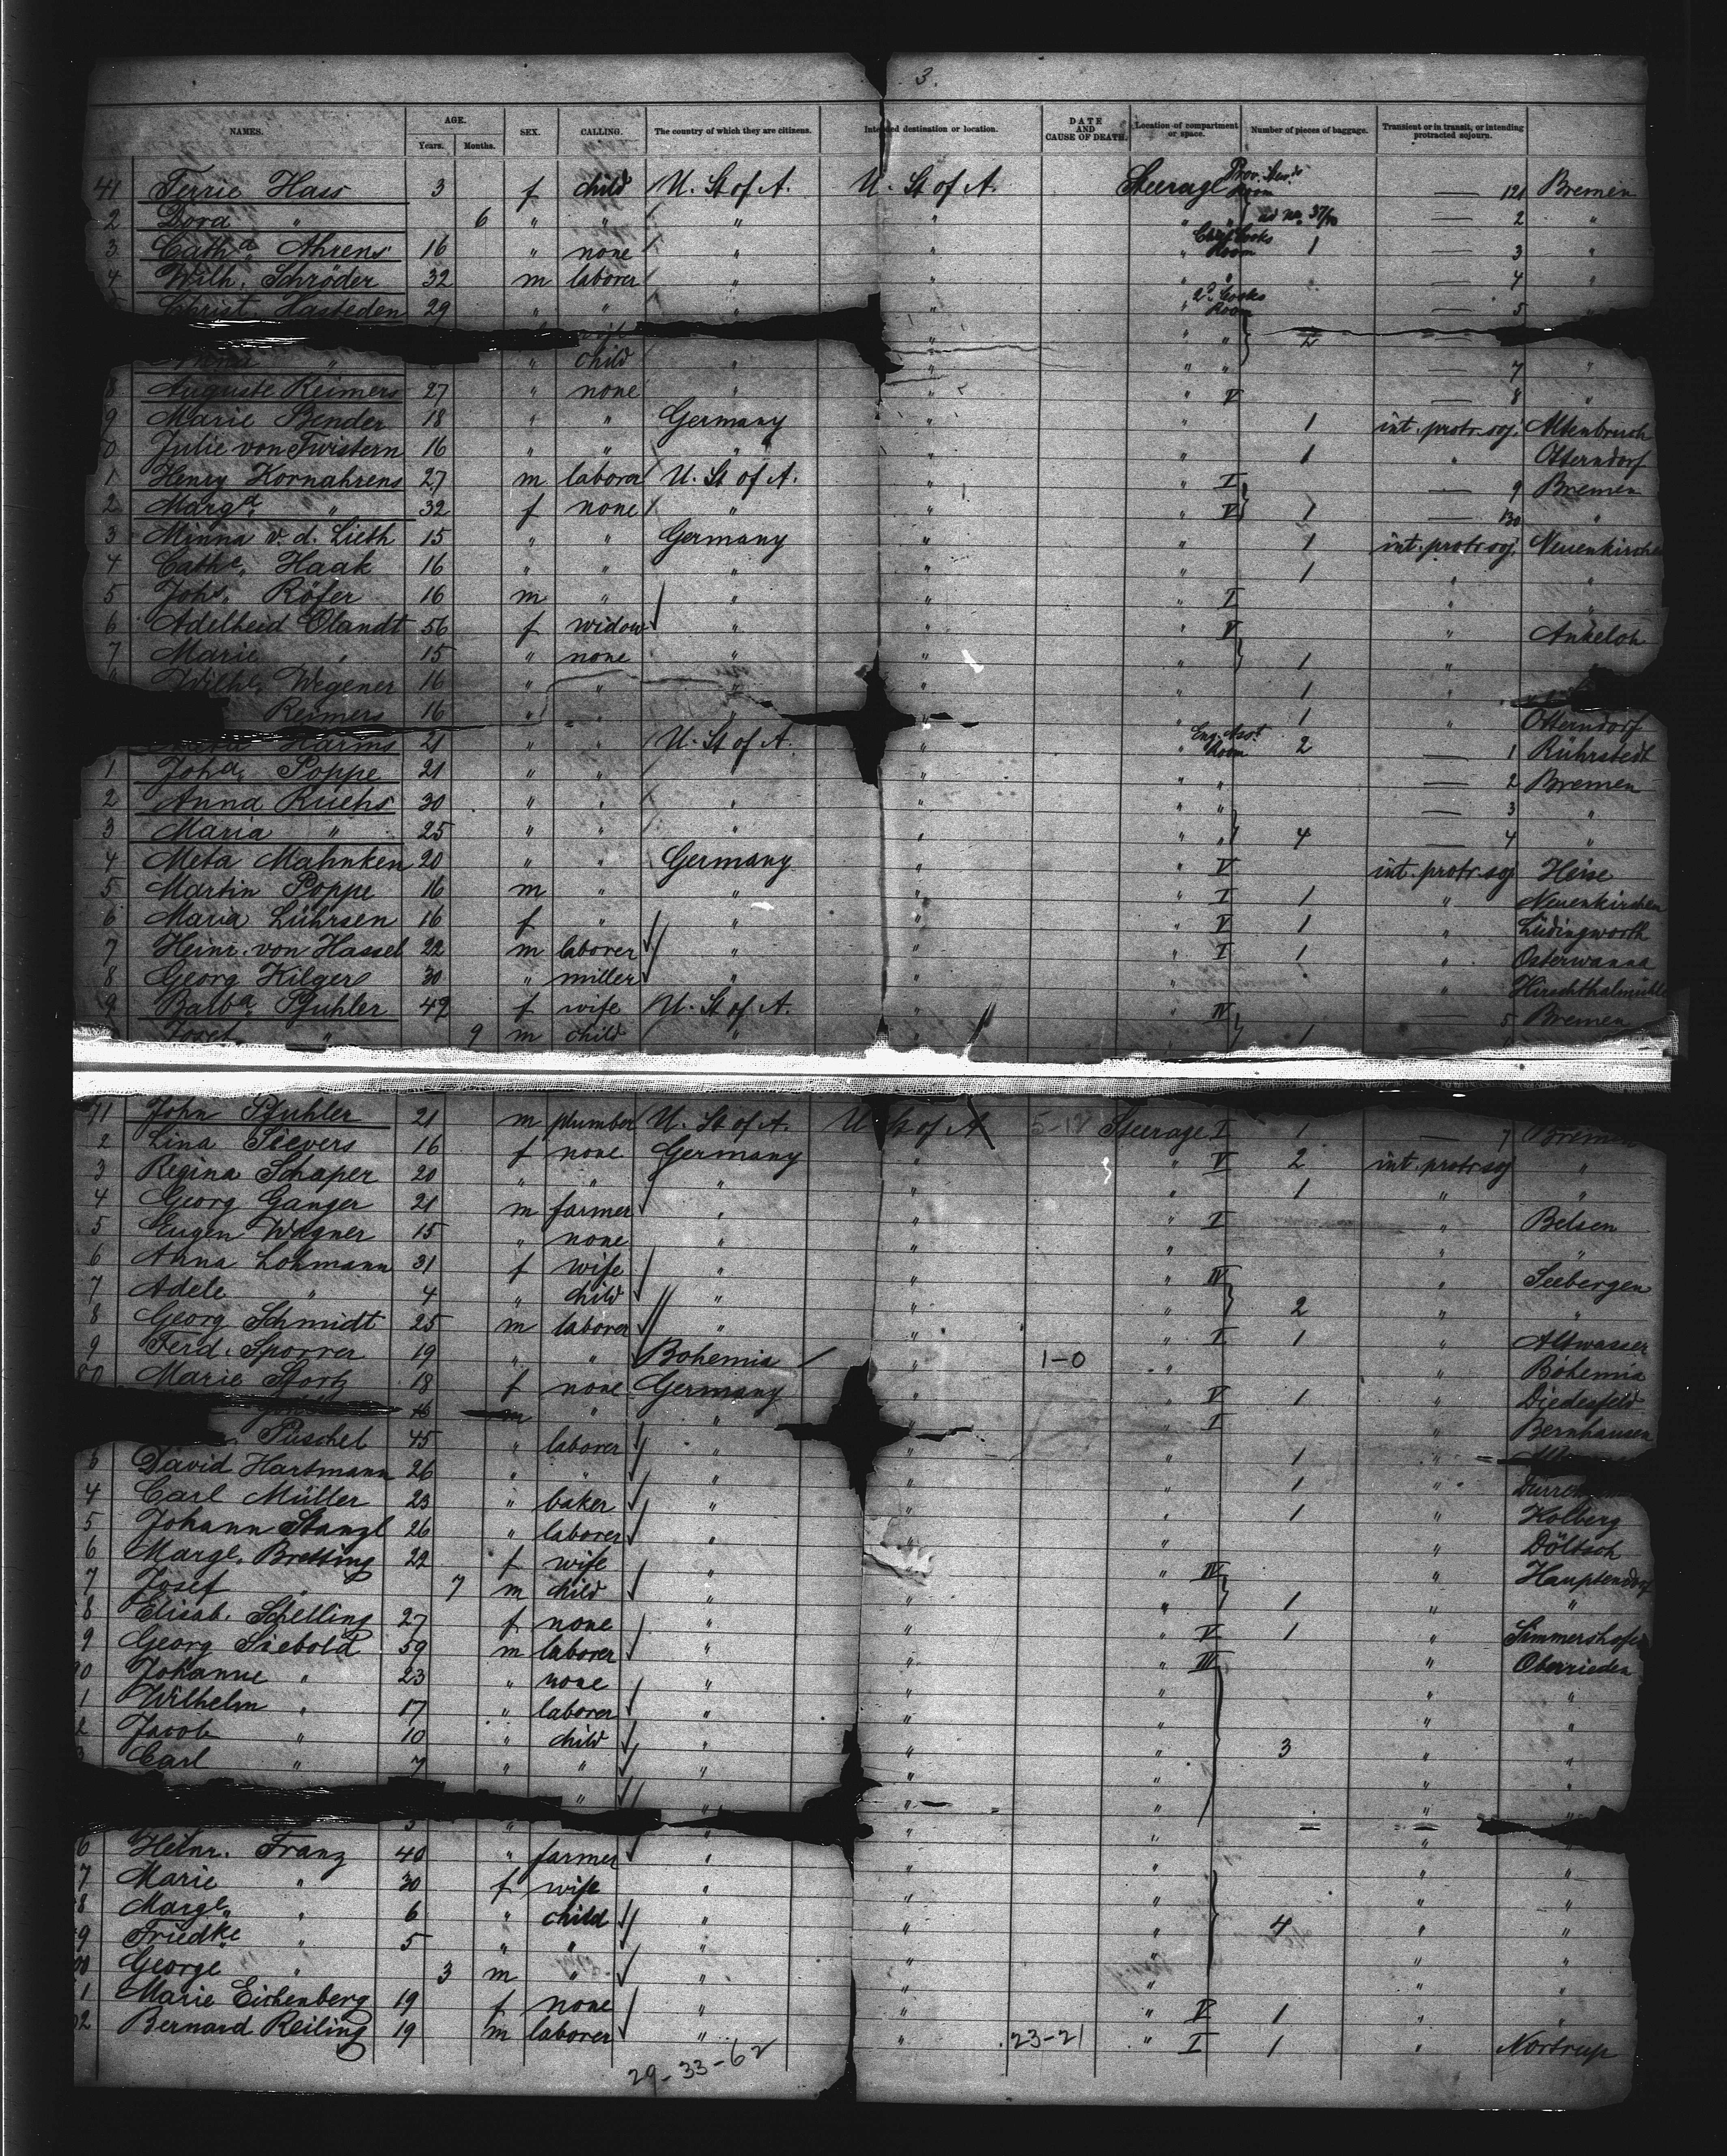 3.
NAMES. AGE. Years. Months. SEX. CALLING. The country of which they are citizens. Intended destination or location. DATE AND CAUSE OF DEATH. Location of compartment or space. Number of pieces of baggage. Transient or in transit, or intending protracted sojourn.
41 Ferrie Hass 3 f child U. St of A. U. St of A. Steerage Room — 121 Bremen
2 Dora " 6 " " " " " " — 2 "
3 Cathᵈ Ahrens 16 " none " " " Cooks Room 1 — 3 "
4 Wilh. Schröder 32 m laborer " " " — 4 "
Christ. Hasteden 29 " " " " " 2ᵈ Cooks Room — 5
" " " 2
child " " " " — 7 "
8 Auguste Reimers 27 " none " " " V — 8 "
9 Marie Bender 18 " " Germany " " 1 int. protr. soj. Altenbruch
0 Julie von Twistern 16 " " " " " 1 " Otterndorf
1 Henry Kornahrens 27 m laborer U. St of A. " " I — 9 Bremen
2 Margᵈ " 32 f none " " " V 1 — 130 "
3 Minna v. d. Lieth 15 " " Germany " " 1 int. protr. soj. Neuenkirchen
4 Cathe. Haak 16 " " " " " 1 " "
5 Johs. Röfer 16 m " " " " I " "
6 Adelheid Olandt 56 f widow " " " V " Ankeloh
7 Marie " 15 " none " " " 1 " "
Wilhe. Wegener 16 " " " " " 1 "
Reimers 16 " " " " " 1 " Otterndorf
Harms 21 " " U. St of A. " " Eng. Asst Room 2 — 1 Ruhrstedt
1 Joha. Poppe 21 " " " " " — 2 Bremen
2 Anna Ruehs 30 " " " " " " — 3 "
3 Maria " 25 " " " " " " 4 — 4 "
4 Meta Mahnken 20 " " Germany " " V int. protr. soj Heise
5 Martin Poppe 16 m " " " " I 1 " Neuenkirchen
6 Maria Lührsen 16 f " " " " V 1 " Lüdingworth
7 Heinr. von Hassel 22 m laborer " " " I 1 " Osterwanna
8 Georg Kilger 30 " miller " " " " Hirschthalmühle
9 Balbᵃ Pfuhler 49 f wife U. St of A. " IV — 5 Bremen
Josef " 9 m child " " 1
71 John Pfuhler 21 m plumber U. St of A. U. St of A 5-12 Steerage I 1 — 7 Bremen
2 Lina Sievers 16 f none Germany " " V 2 int. protr. soj "
3 Regina Schaper 20 " " " " " 1 " "
4 Georg Ganger 21 m farmer " " " I " Belsen
5 Eugen Wagner 15 " none " " " " "
6 Anna Lohmann 31 f wife " " " IV " Seebergen
7 Adele " 4 " child " " " 2 " "
8 Georg Schmidt 25 m laborer " " " I 1 " Altwasser
9 Ferd. Sporrer 19 " " Bohemia " 1-0 " " Bohemia
80 Marie Stortz 18 f none Germany " " V 1 " Diedesfeld
16 m " " " I " Bernhausen
Püschel 45 " laborer " " " 1 "
David Hartmann 26 " " " " " 1 "
4 Carl Müller 23 " baker " " " 1 " Kolberg
5 Johann Stangl 26 " laborer " " " " Döltsch
6 Margl. Bretting 22 f wife " " " IV " Hauptendorf
7 Josef " 7 m child " " " 1 " "
8 Elisab. Schelling 27 f none " " " V 1 " Simmershofen
9 Georg Siebold 59 m laborer " " " III " Oberrieden
90 Johanne " 23 " none " " " " "
1 Wilhelm " 17 " laborer " " " " "
2 Jacob " 10 " child " " " 3 " "
3 Carl " 7 " " " " " " "
" " " " " "
3 " " " " "
6 Heinr. Franz 40 " farmer " " " " "
7 Marie " 30 f wife " " " " "
8 Margl. " 6 " child " " " 4 " "
9 Friedke " 5 " " " " " " "
00 George " 3 m " " " " " "
1 Marie Eichenberg 19 f none " " " V 1 " "
02 Bernard Reiling 19 m laborer " " 23-21 " I 1 " Nortrup
29-33-62